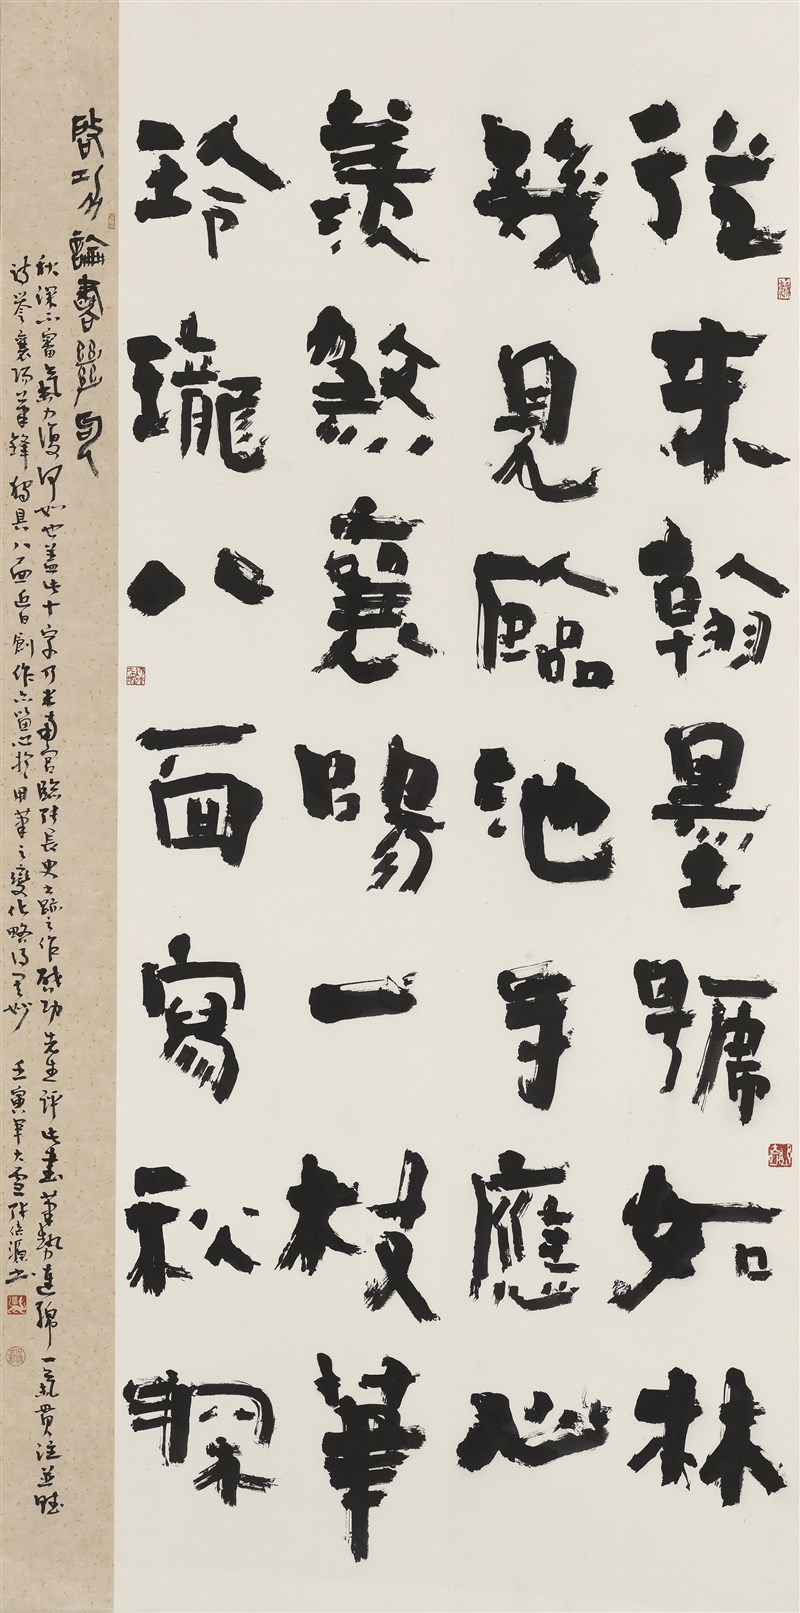 從來翰墨號如林
幾見臨池手應心
羨煞襄陽一枝筆
玲瓏八面寫秋深
啟功論書絕句
秋深不審氣力復何如也蓋此十字乃米南宮臨張長史之跡之作啟功先生評此書筆勢連綿一氣貫注並賦
詩譽襄陽筆鋒獨具八面近日創作亦留心於用筆之變化略得其妙 壬寅年大雪